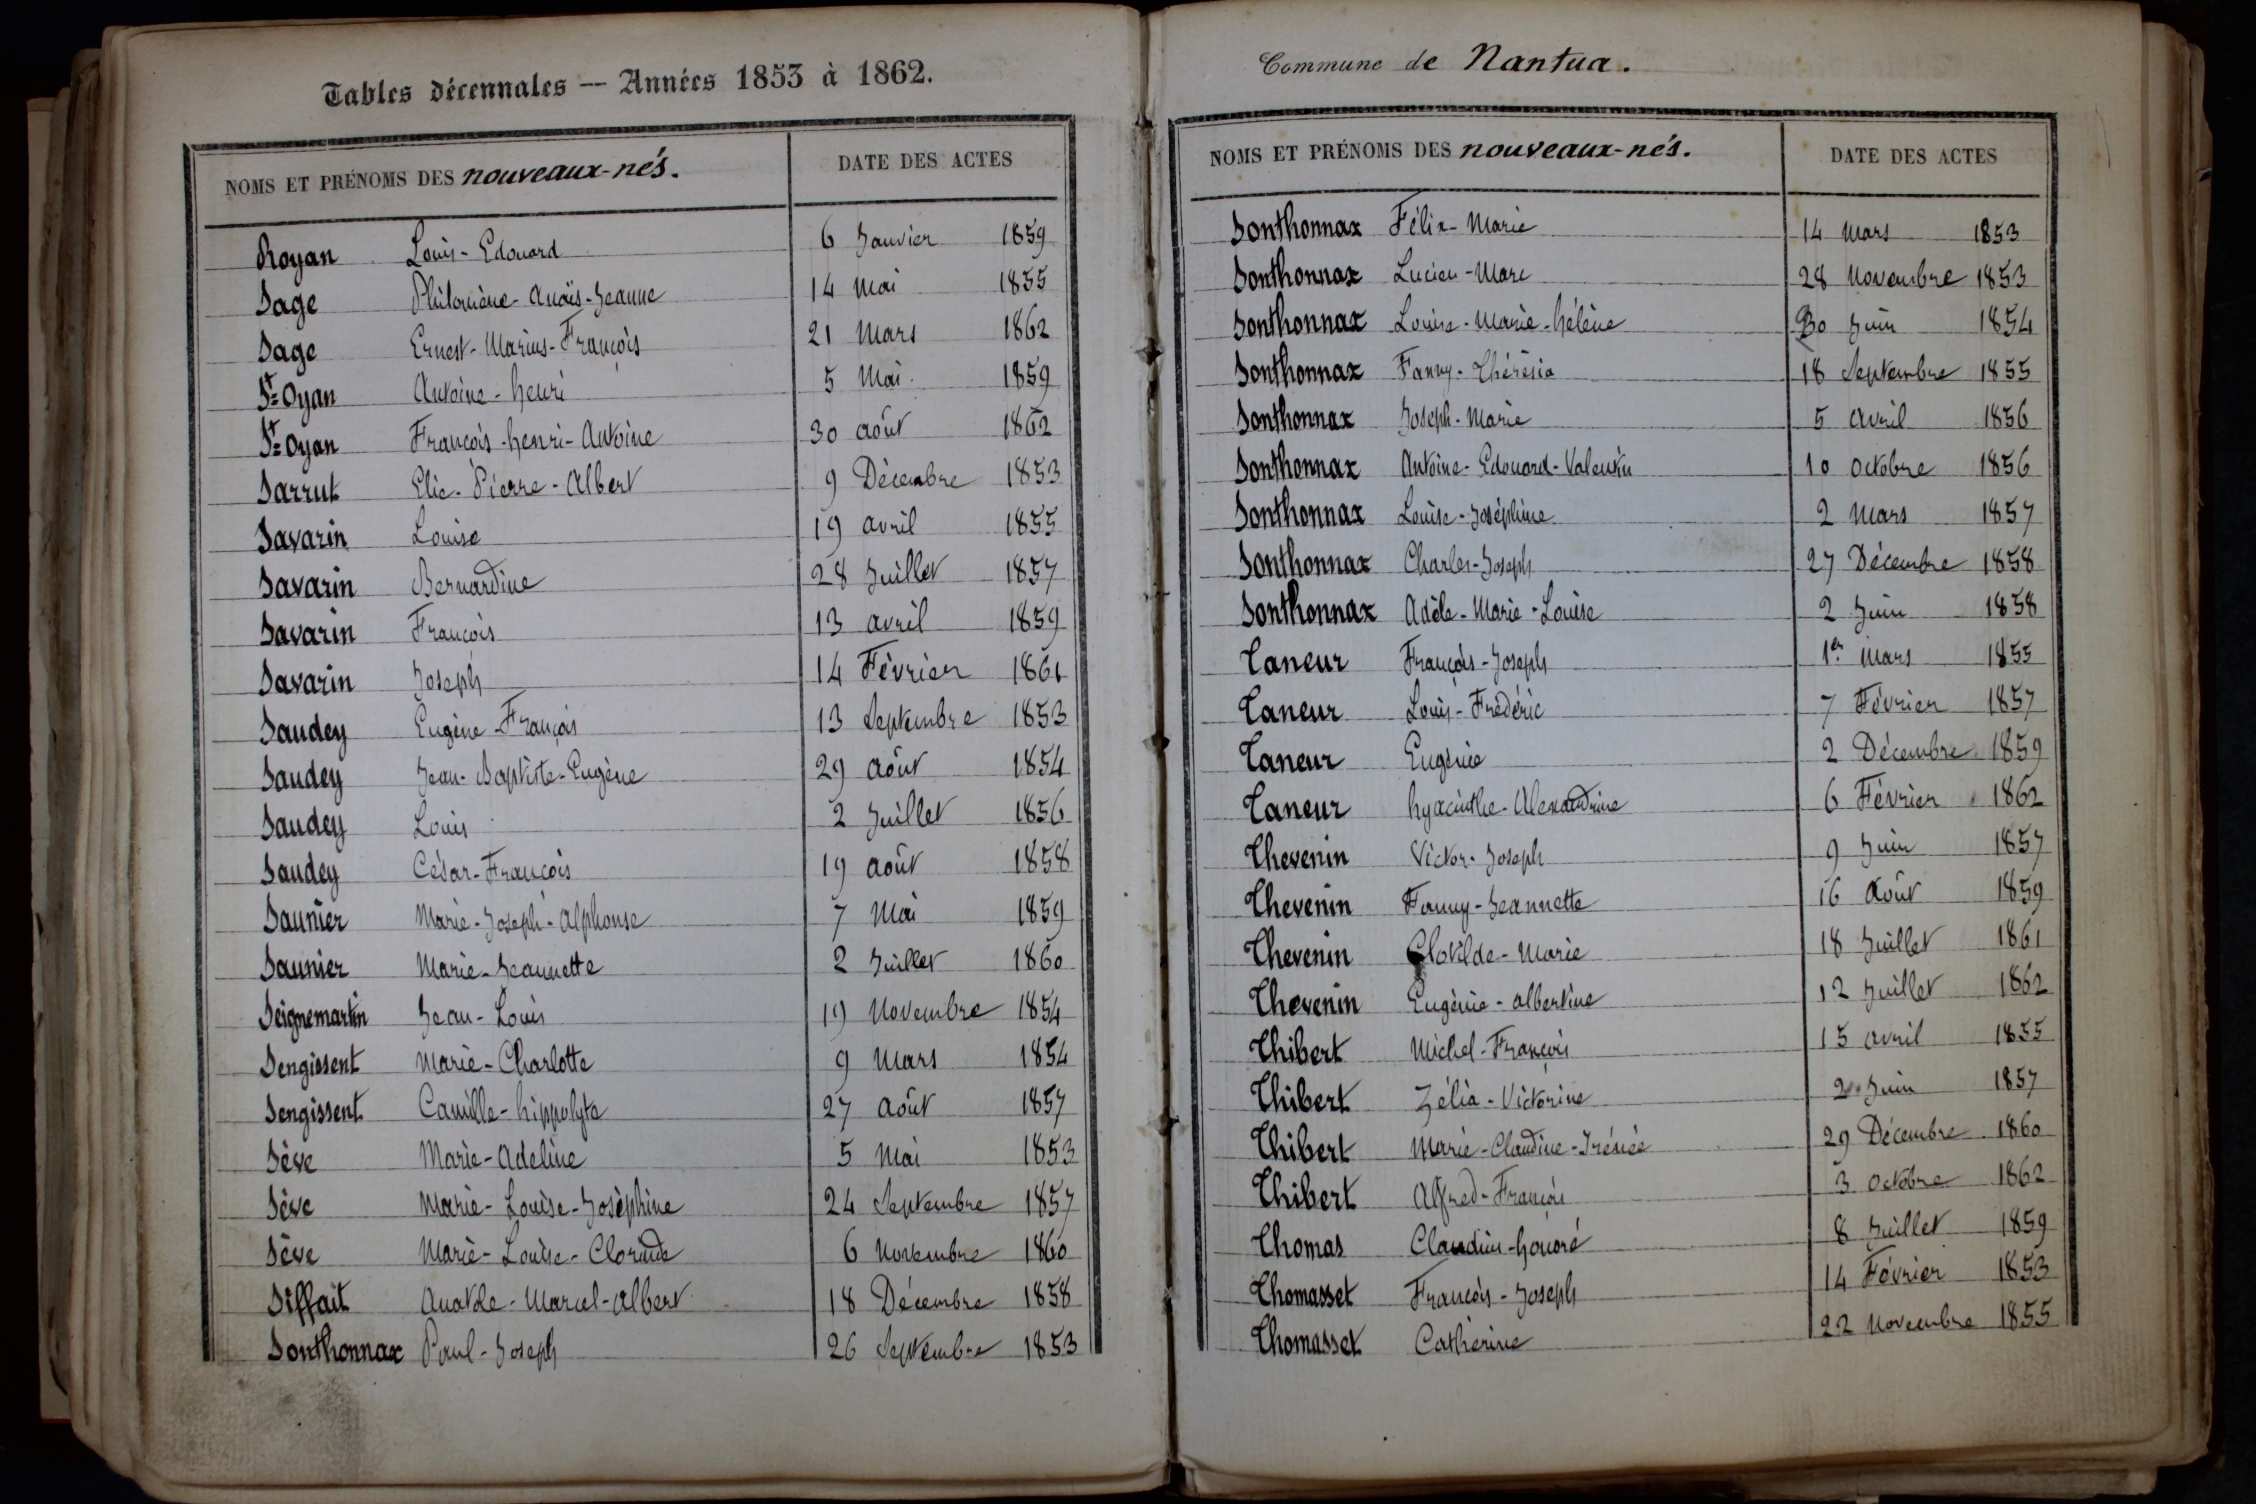 Tables décennales — Années 1853 à 1862.
NOMS ET PRÉNOMS DES nouveaux-nés. DATE DES ACTES
Royan Louis-Edouard 6 Janvier 1859
Sage Philomène-Anaïs-Jeanne 14 Mai 1855
Sage Ernest-Marius-François 21 Mars 1862
St Oyan Antoine-henri 5 Mai 1859
St Oyan François-henri-Antoine 30 août 1862
Sarrut Elie-Pierre-Albert 9 Décembre 1853
Savarin Louise 19 avril 1855
Savarin Bernardine 28 Juillet 1857
Savarin François 13 avril 1859
Savarin Joseph 14 Février 1861
Saudey Eugène-François 13 Septembre 1853
Saudey Jean-Baptiste-Eugène 29 août 1854
Saudey Louis 2 Juillet 1856
Saudey César-François 19 août 1858
Saunier Marie-Joseph-Alphonse 7 Mai 1859
Saunier Marie-Jeannette 2 Juillet 1860
Seignemartin Jean-Louis 19 Novembre 1854
Sengissent Marie-Charlotte 9 Mars 1854
Sengissent Camille-hippolyte 27 août 1857
Sève Marie-Adeline 5 Mai 1853
Sève Marie-Louise-Joséphine 24 Septembre 1857
Sève Marie-Louise-Clorinde 6 Novembre 1860
Siffait Anatole-Marcel-Albert 18 Décembre 1858
Sonthonnax Paul-Joseph 26 Septembre 1853
Commune de Nantua.
NOMS ET PRÉNOMS DES nouveaux-nés. DATE DES ACTES
Sonthonnax Félix-Marie 14 Mars 1853
Sonthonnax Lucien-Marc 28 Novembre 1853
Sonthonnax Louise-Marie-hélène 30 Juin 1854
Sonthonnax Fanny-Thérésia 18 Septembre 1855
Sonthonnax Joseph-Marie 5 avril 1856
Sonthonnax Antoine-Edouard-Valentin 10 octobre 1856
Sonthonnax Louise-Joséphine 2 Mars 1857
Sonthonnax Charles-Joseph 27 Décembre 1858
Sonthonnax Adèle-Marie-Louise 2 Juin 1858
Taneur François-Joseph 1er Mars 1855
Taneur Louis-Frédéric 7 Février 1857
Taneur Eugénie 2 Décembre 1859
Taneur hyacinthe-Alexandrine 6 Février 1862
Thevenin Victor-Joseph 9 Juin 1857
Thevenin Fanny-Jeannette 16 Août 1859
Thevenin Clotilde-Marie 18 Juillet 1861
Thevenin Eugénie-albertine 12 Juillet 1862
Thibert Michel-François 15 avril 1855
Thibert Zélia-Victorine 2 Juin 1857
Thibert Marie-Claudine-Irénée 29 Décembre 1860
Thibert Alfred-François 3 octobre 1862
Thomas Claudius-honoré 8 Juillet 1859
Thomasset François-Joseph 14 Février 1853
Thomasset Catherine 22 Novembre 1855